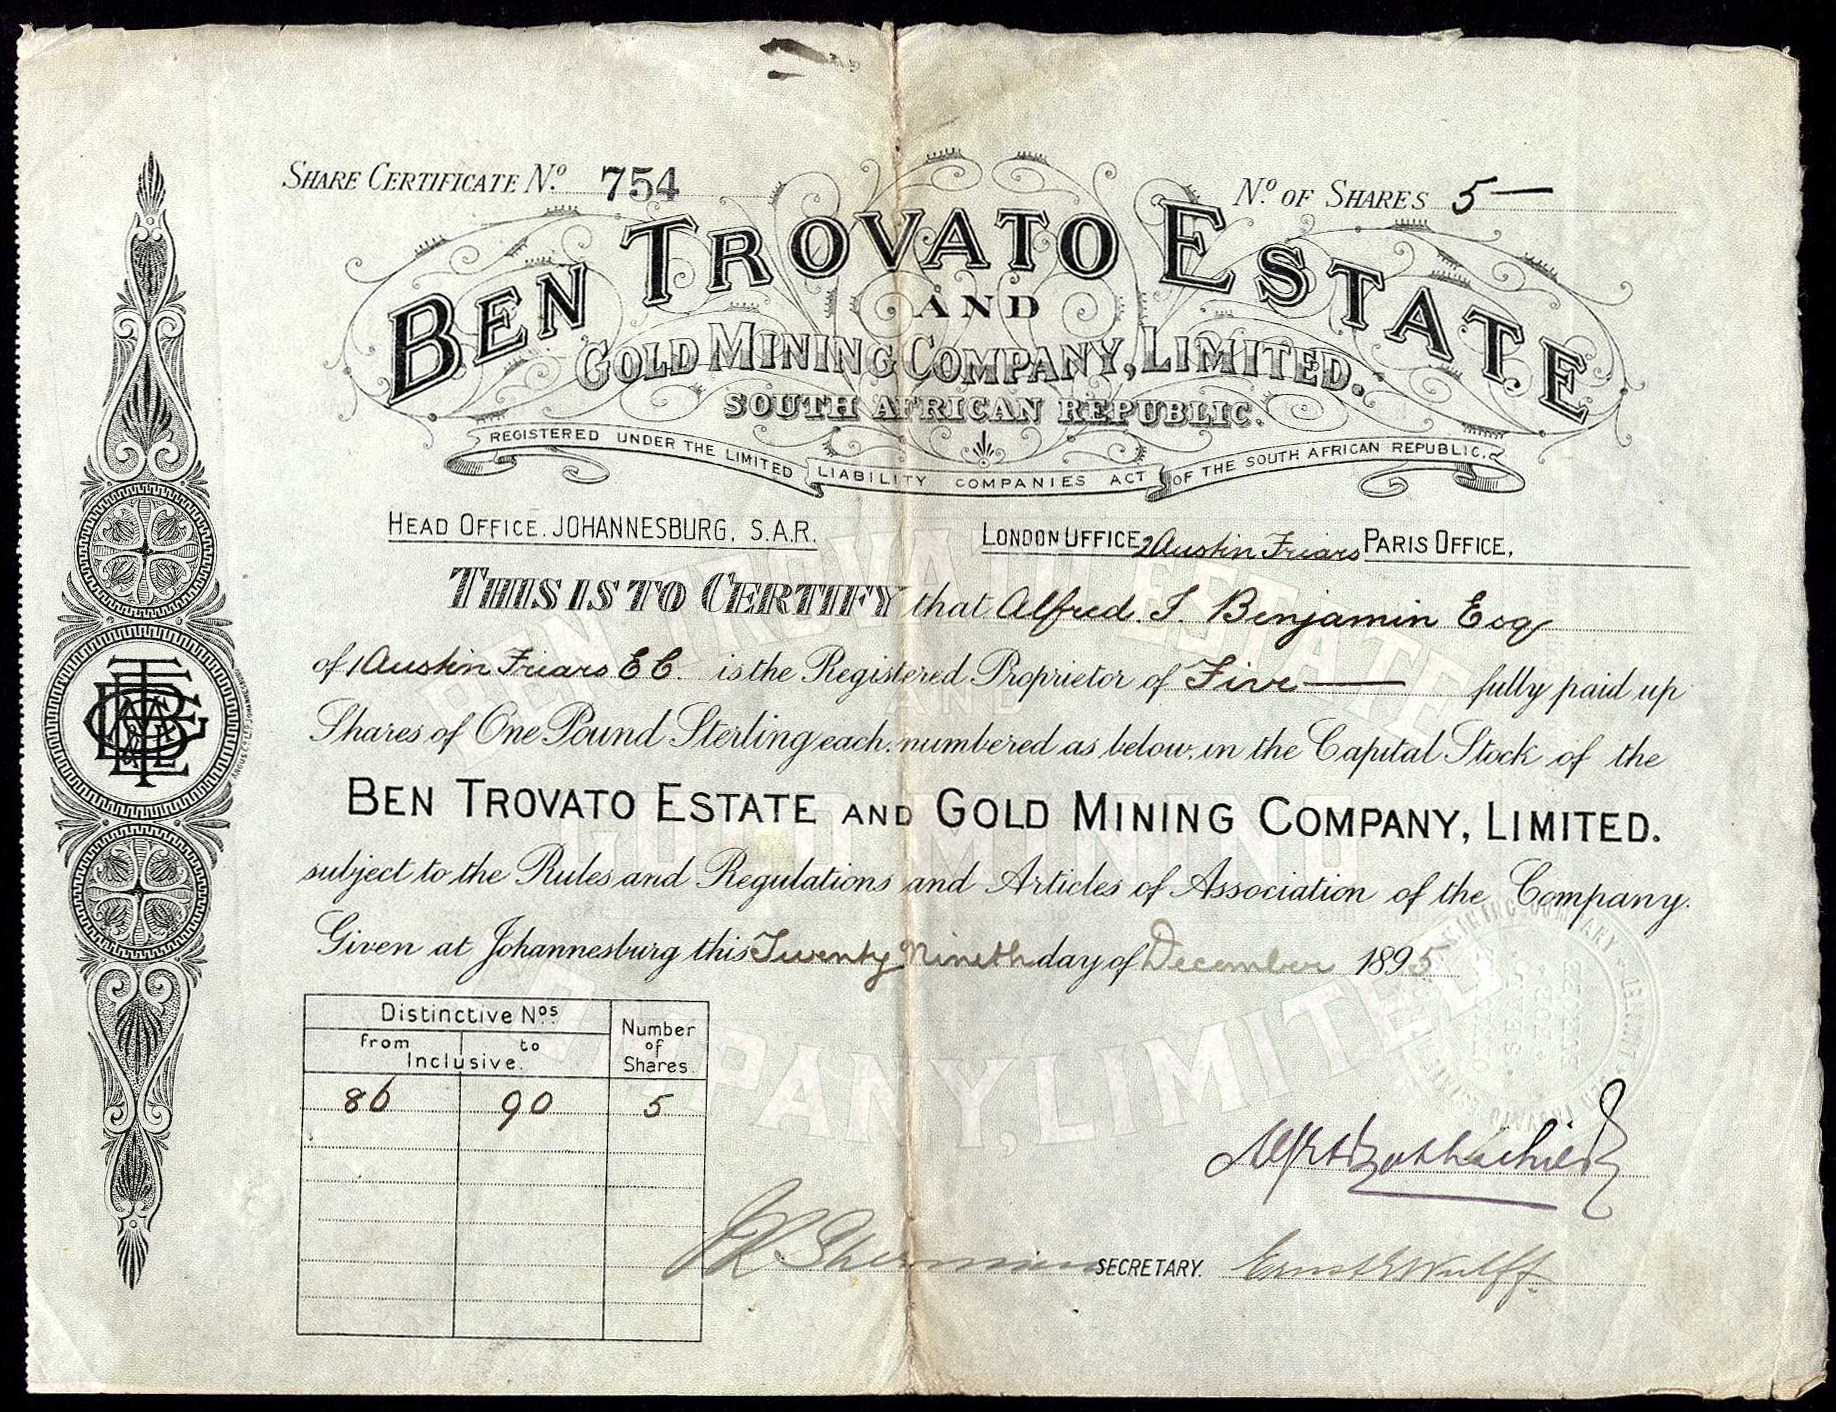 SHARE CERTIFICATE No. 754
No. OF SHARES 5—
BEN TROVATO ESTATE
AND
GOLD MINING COMPANY, LIMITED.
SOUTH AFRICAN REPUBLIC.
REGISTERED UNDER THE LIMITED LIABILITY COMPANIES ACT OF THE SOUTH AFRICAN REPUBLIC.
HEAD OFFICE. JOHANNESBURG, S.A.R.
LONDON OFFICE, 2 Austin Friars PARIS OFFICE,
THIS IS TO CERTIFY that Alfred. J. Benjamin Esq
of 1 Austin Friars E C. is the Registered Proprietor of Five— fully paid up
Shares of One Pound Sterling each, numbered as below, in the Capital Stock of the
BEN TROVATO ESTATE AND GOLD MINING COMPANY, LIMITED.
subject to the Rules and Regulations and Articles of Association of the Company.
Given at Johannesburg this Twenty Nineth day of December 1895
Distinctive Nos.
from to
Inclusive.
Number
of
Shares.
86 90 5
SECRETARY.
Ernst Wulff